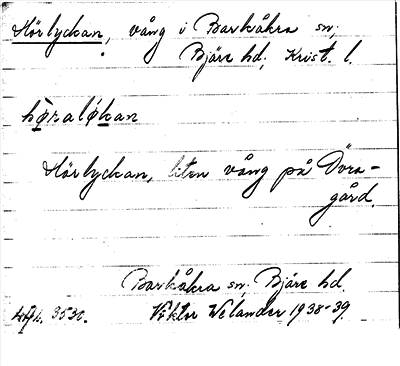 Hörlyckan, vång i Barkåkra sn,
Bjäre hd, Krist. l.
hø̠raløk̠an
Hörlyckan, liten vång på Övra-
gård.
Barkåkra sn, Bjäre hd.
Viktor Welander 1938-39.